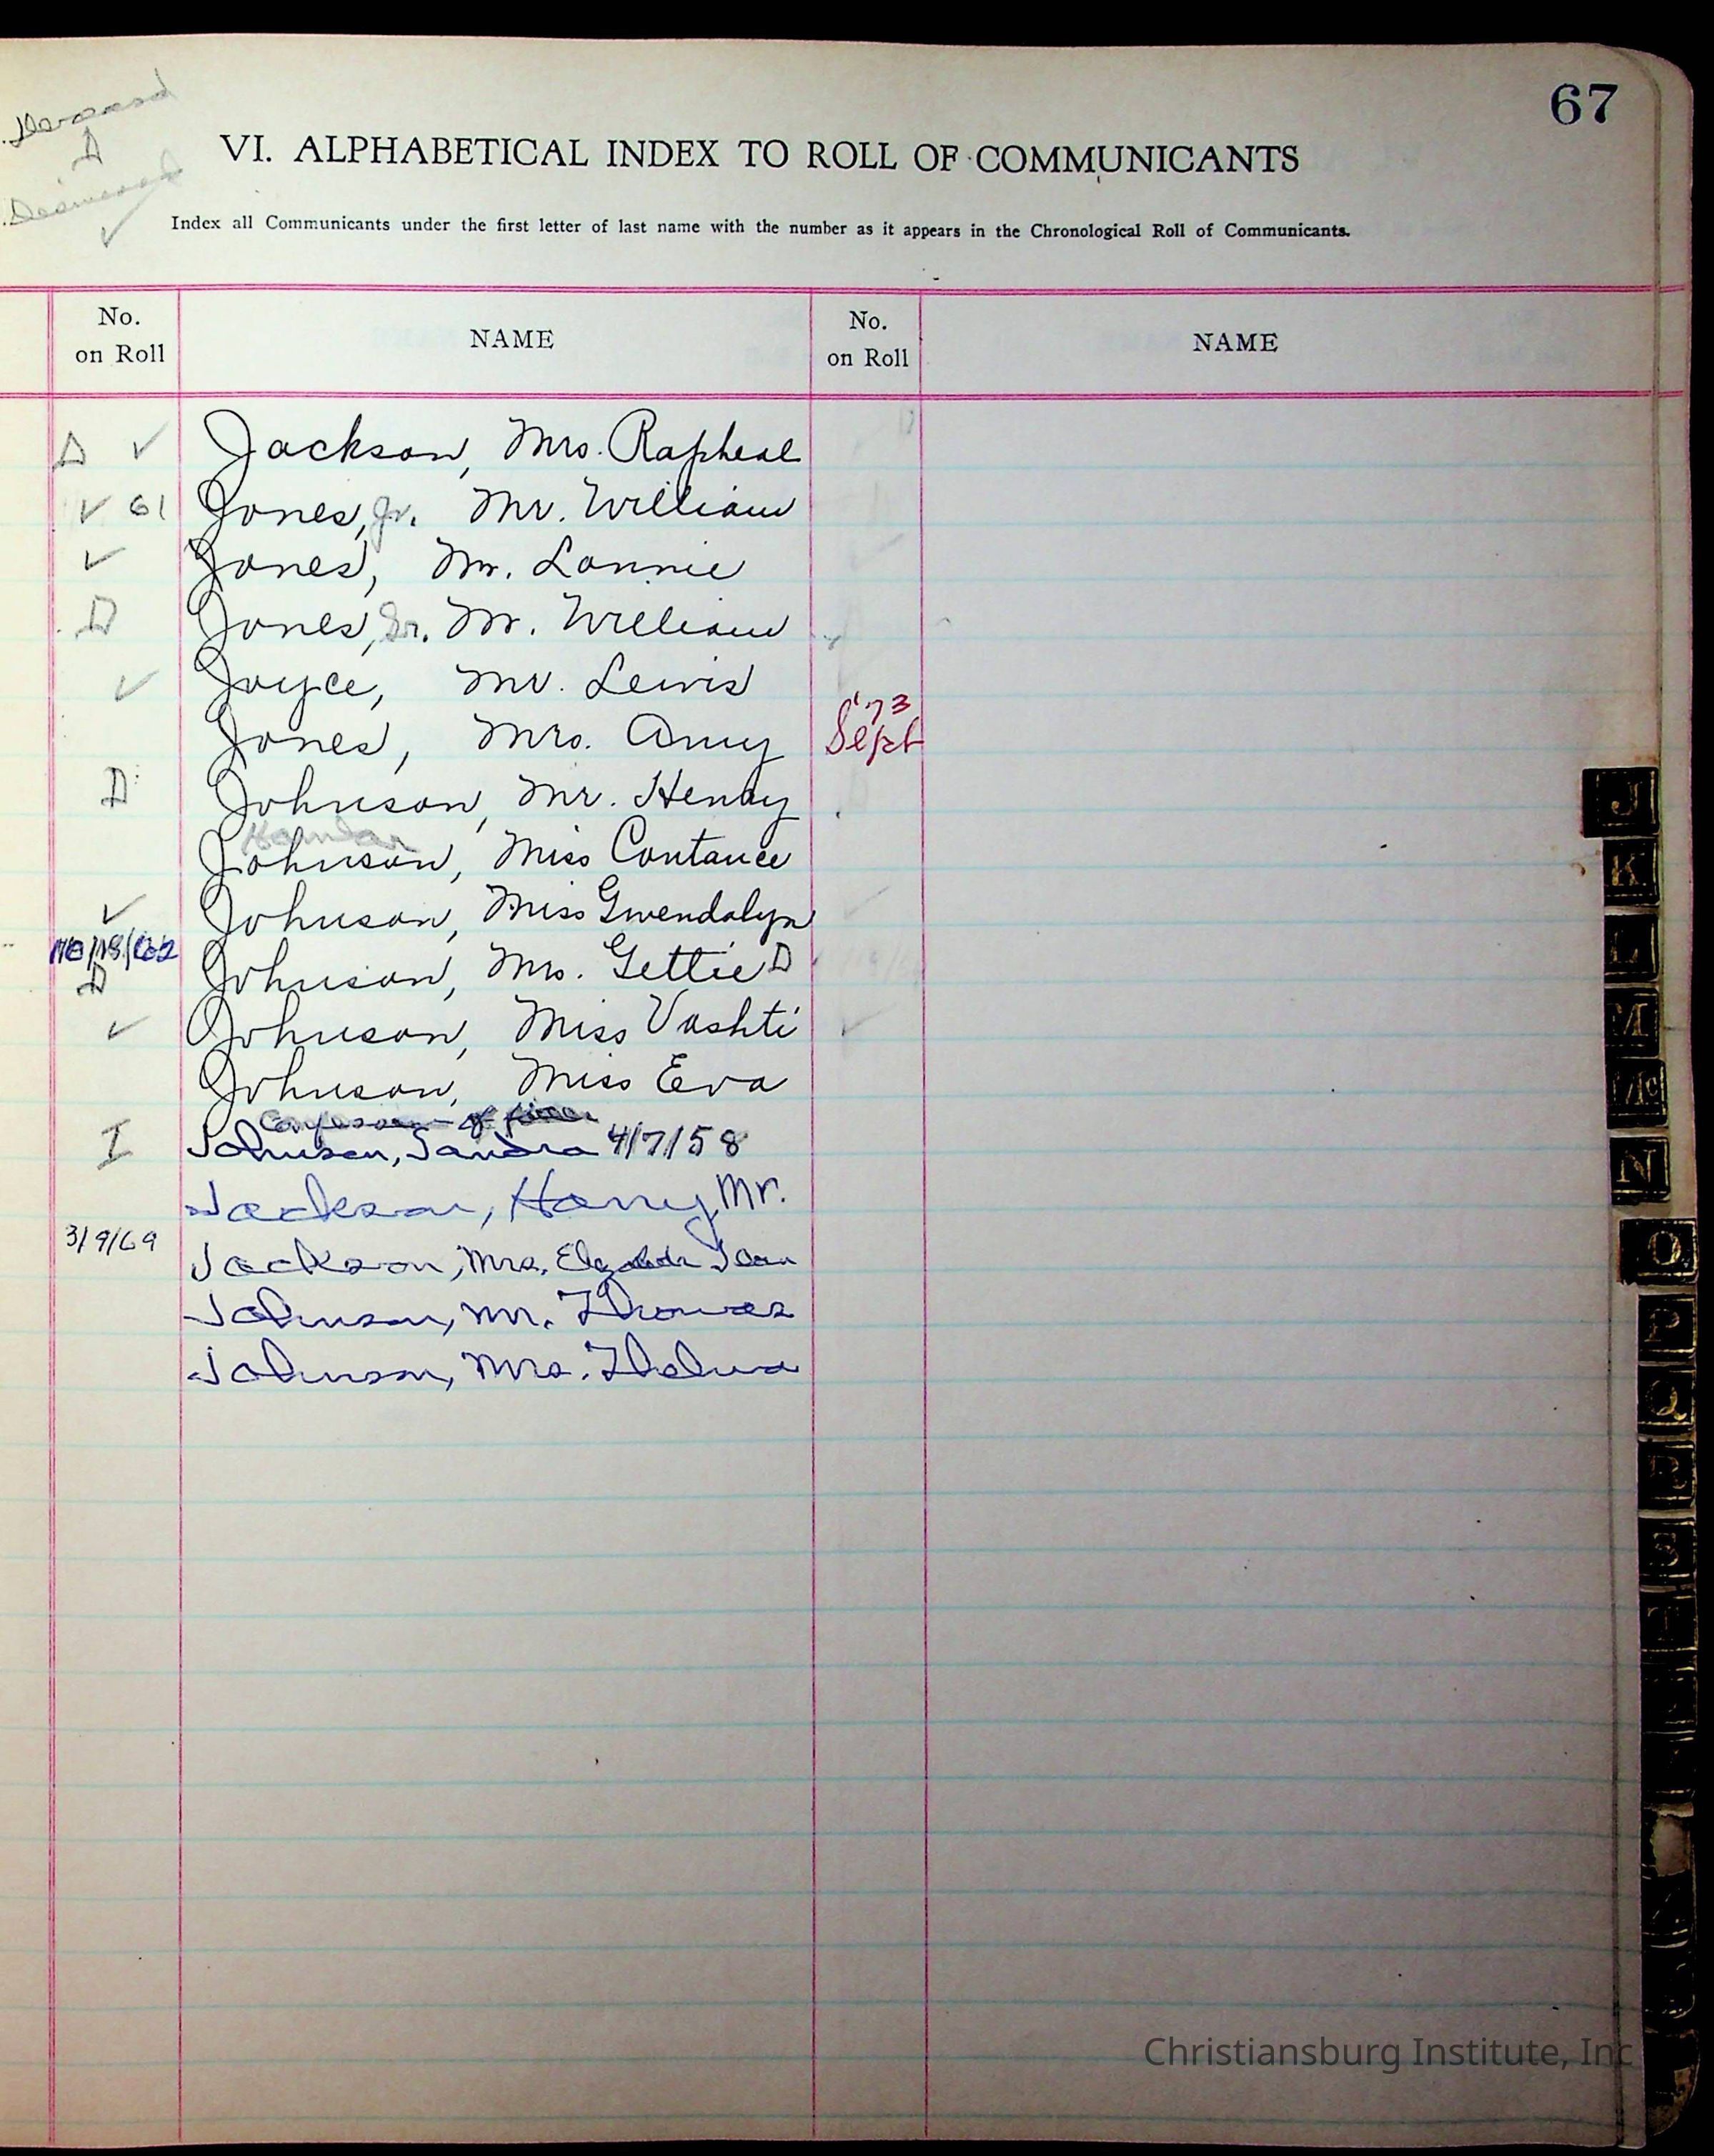 67
Deceased
D
Dismissed
✓
VI. ALPHABETICAL INDEX TO ROLL OF COMMUNICANTS
Index all Communicants under the first letter of last name with the number as it appears in the Chronological Roll of Communicants.
No. on Roll NAME No. on Roll NAME
D ✓ Jackson, Mrs. Rapheal
✓ 61 Jones, Jr. Mr. William
✓ Jones, Mr. Lonnie
D Jones, Sr. Mr. William
✓ Joyce, Mr. Lewis
Jones, Mrs. Amy Sept '73
D Johnson, Mr. Henry
Johnson, Miss Contance
✓ Johnson, Miss Gwendolyn
D Johnson, Mrs. Gettie D
✓ Johnson, Miss Vashti ✓
Johnson, Miss Eva
I Johnson, Sandra 4/7/58
Jackson, Harry Mr.
3/9/69 Jackson, Mrs. Jean
Johnson, Mr. Thomas
Johnson, Mrs. Thelma
J
K
L
M
Mc
N
O
P
Q
R
S
T
Christiansburg Institute, Inc